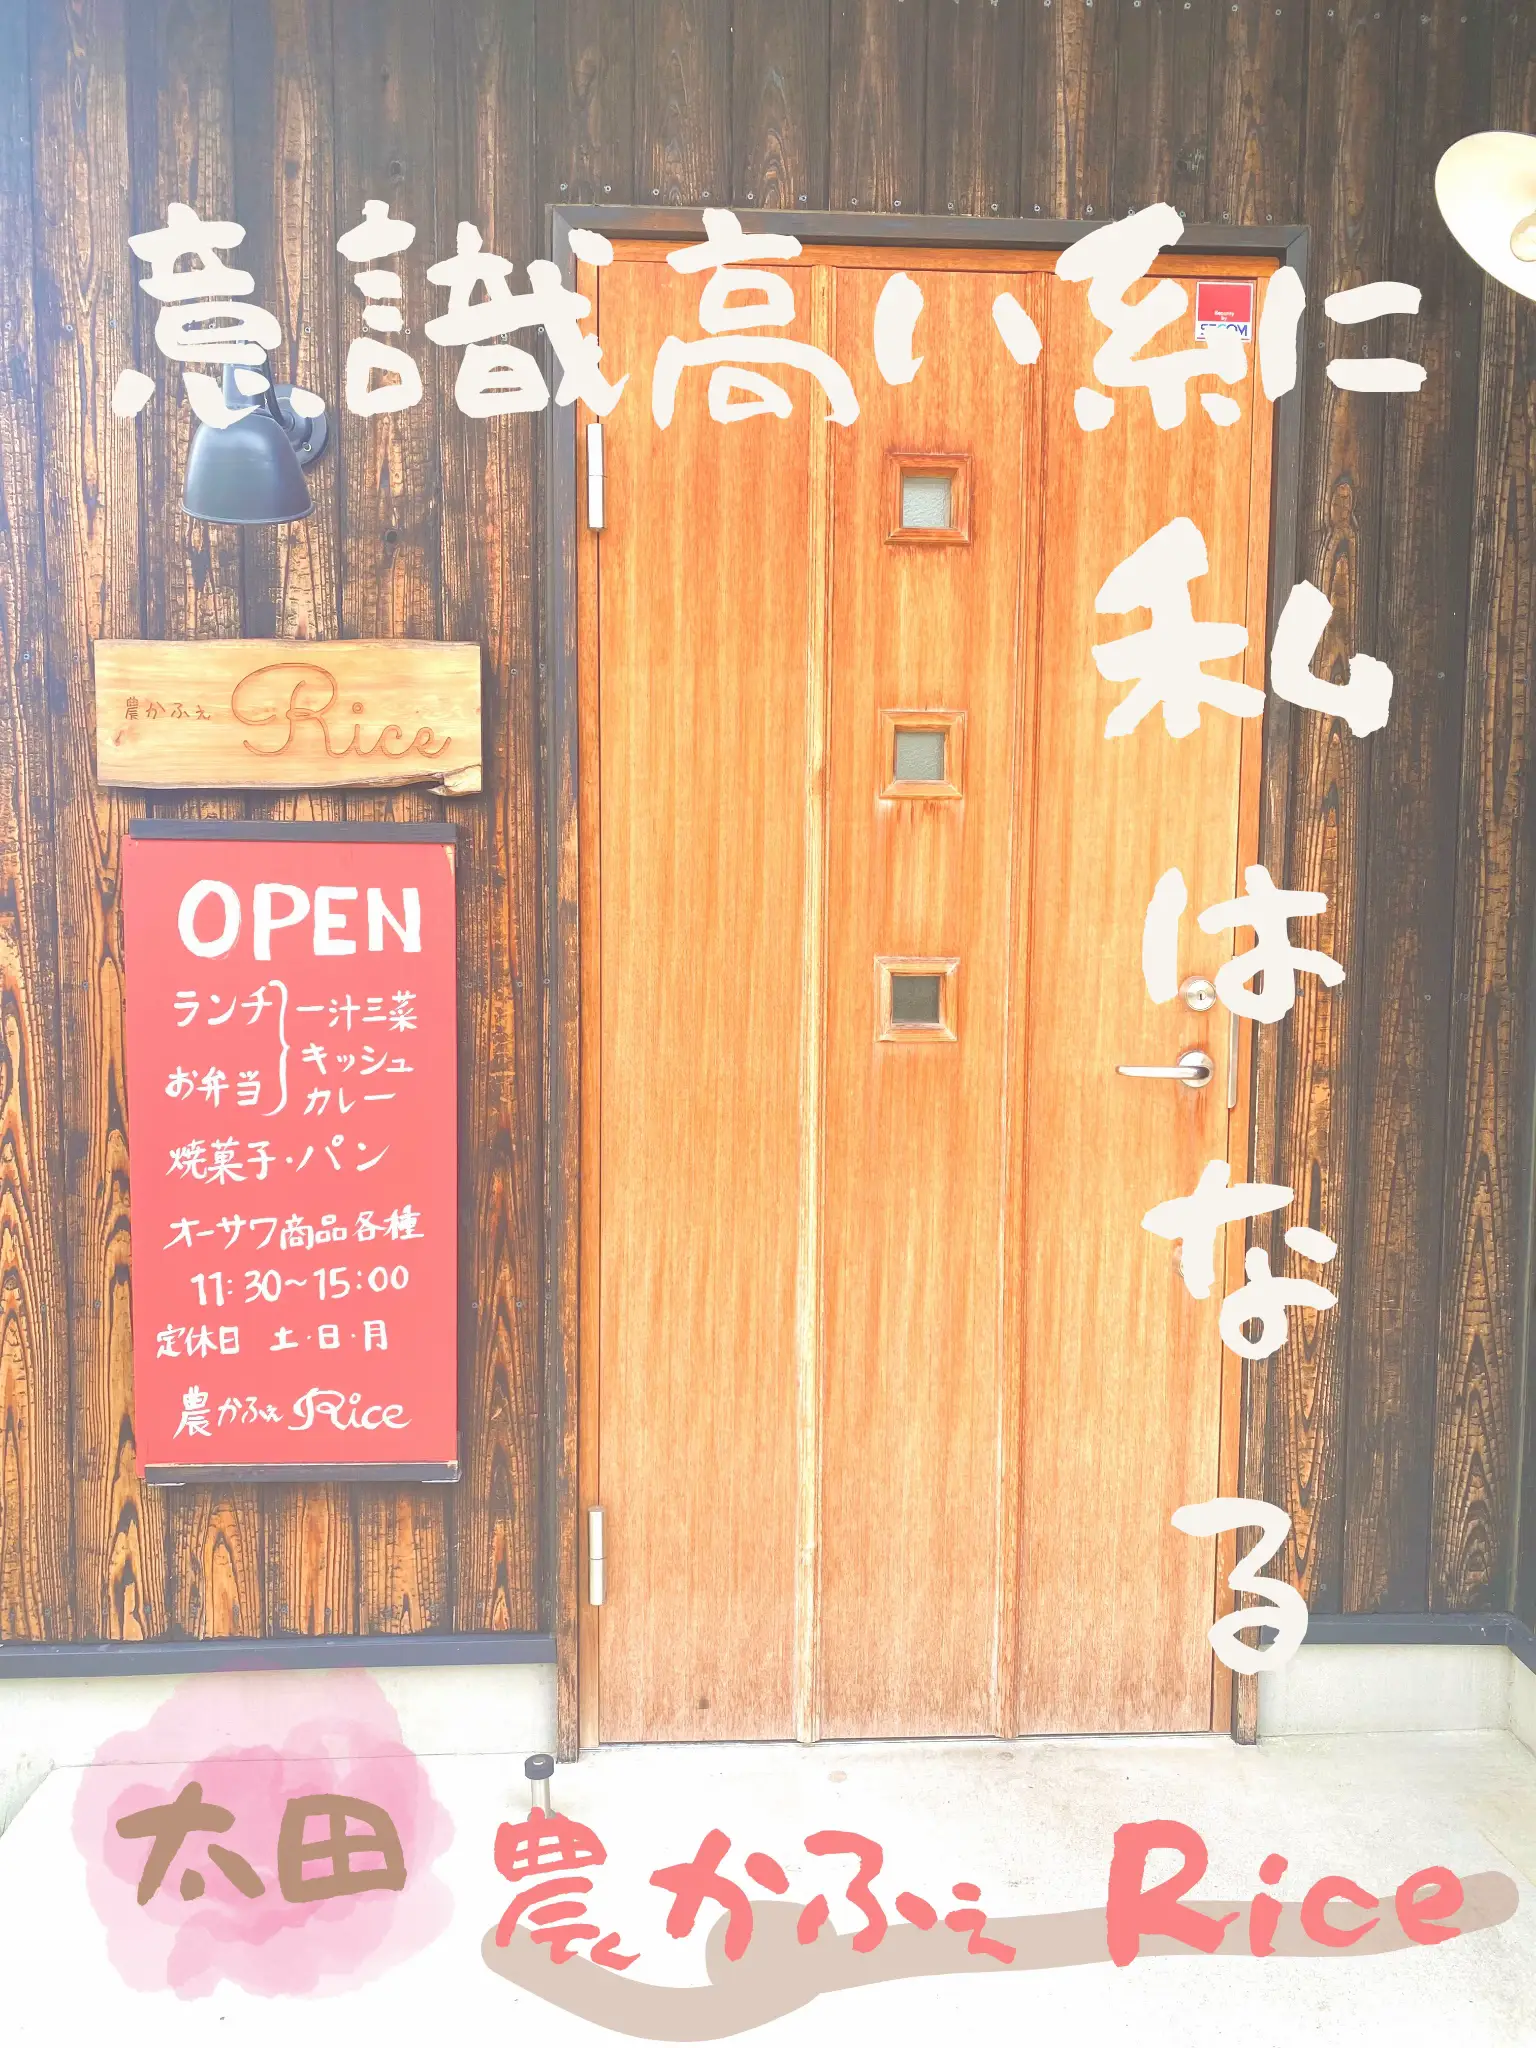 意識高い系に
私はなる
Security by
SECOM
農かふぇ Rice
OPEN
ランチ
お弁当
一汁三菜
キッシュ
カレー
焼菓子・パン
オーサワ商品各種
11:30~15:00
定休日 土・日・月
農かふぇ Rice
太田 農かふぇ Rice